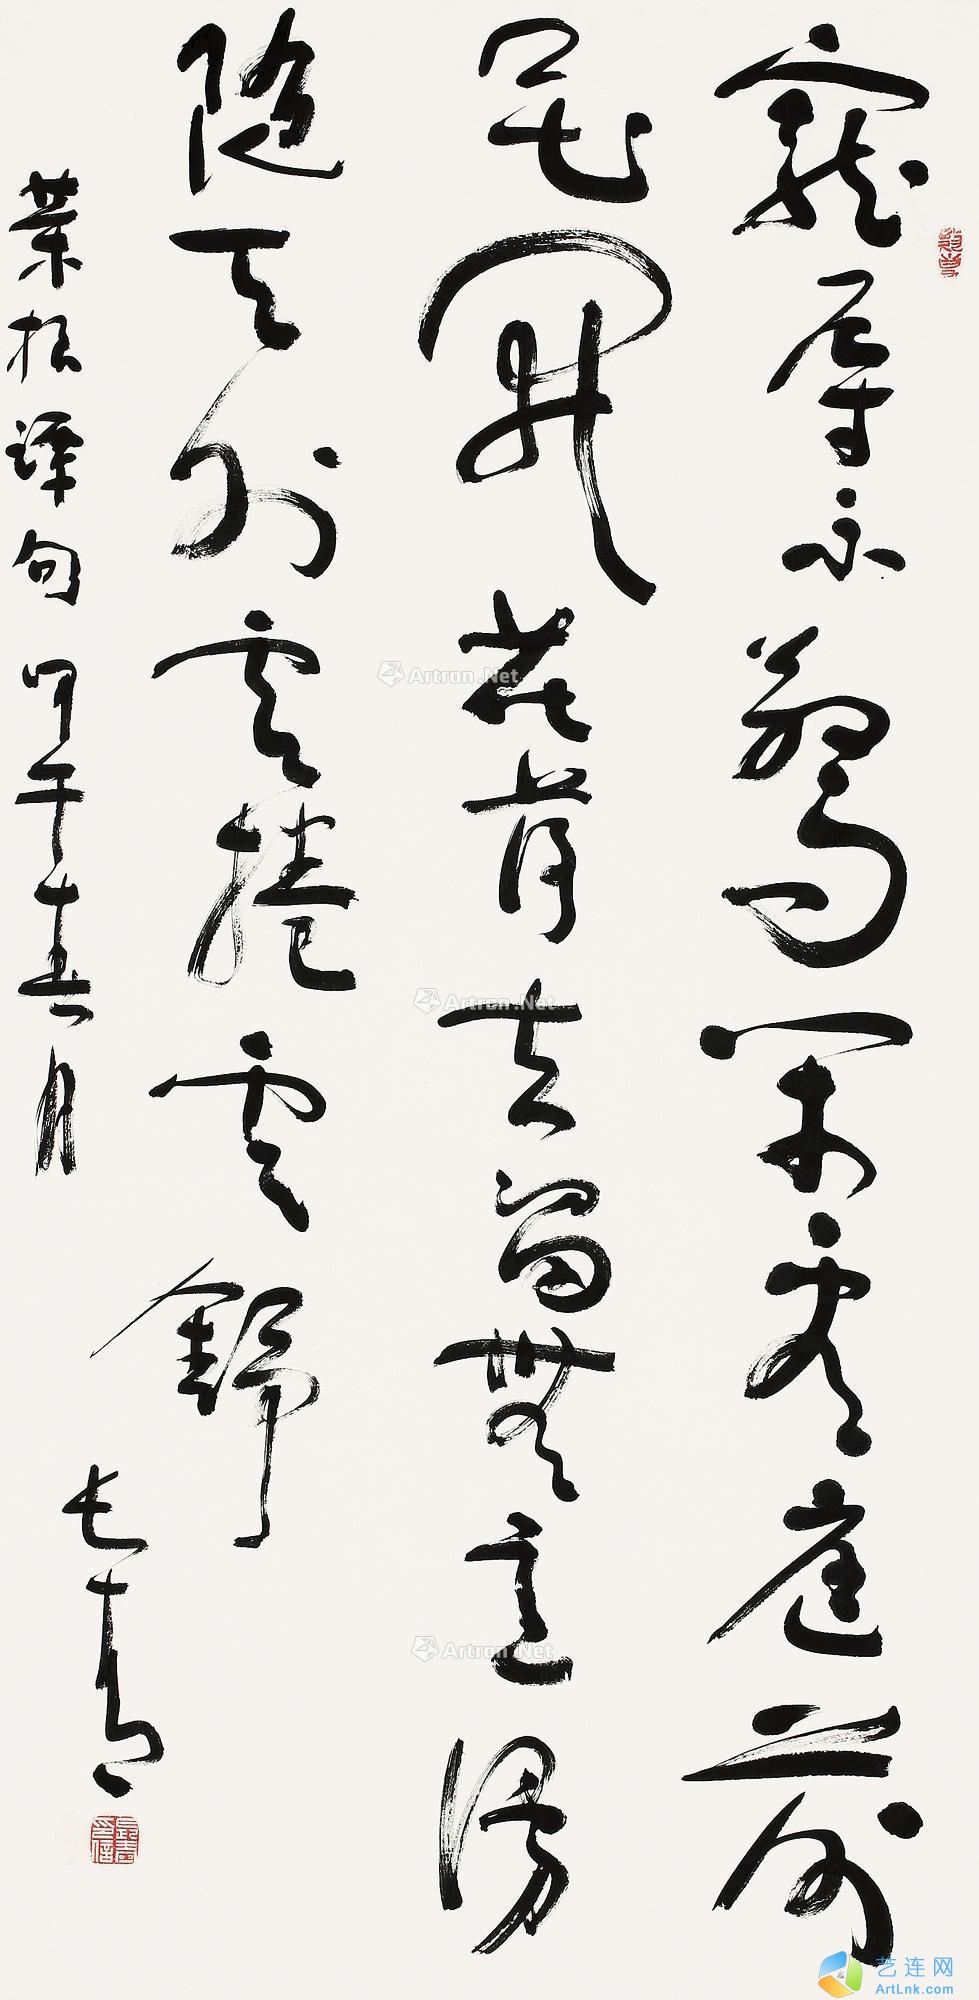 寵辱不驚閑看庭前
花開花落去留無意漫
隨天外雲捲雲舒
菜根譚句 甲午春月
長青
Artron.Net
Artron.Net
Artron.Net
艺连网
ArtLnk.com